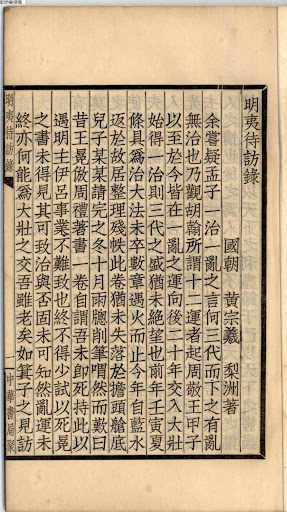 明夷待訪錄
國朝 黃宗羲 梨洲著
余嘗疑孟子一治一亂之言何三代而下之有亂
無治也乃觀胡翰所謂十二運者起周敬王甲子
以至於今皆在一亂之運向後二十年交入大壯
始得一治則三代之盛猶未絕望也前年壬寅夏
條具為治大法未卒數章遇火而止今年自藍水
返於故居整理殘帙此卷猶未失落於擔頭艙底
兒子某某請完之冬十月雨牕削筆喟然而歎曰
昔王冕倣周禮著書一卷自謂吾未即死持此以
遇明主伊呂事業不難致也終不得少試以死冕
之書未得見其可致治與否固未可知然亂運未
終亦何能為大壯之交吾雖老矣如箕子之見訪
明夷待訪錄
一
中華書局聚